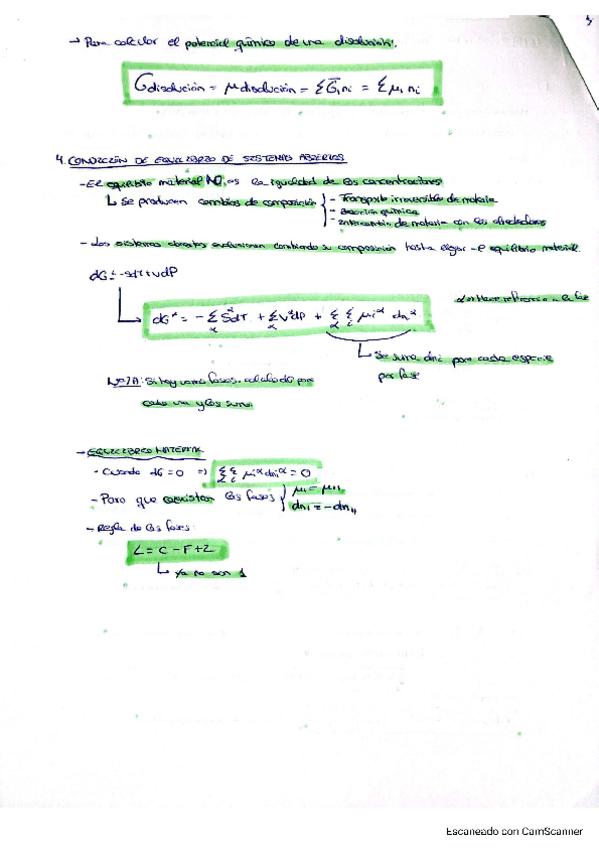 → Para calcular el potencial químico de una disolución:
Gdisolución = μdisolución = Σ G̅i ni = Σ μi ni
4. CONDICIÓN DE EQUILIBRIO DE SISTEMAS ABIERTOS
- El equilibrio material NO es la igualdad de las concentraciones
↳ Se producen cambios de composición { - Transporte irreversible de materia
- Reacción química
- Intercambio de materia con los alrededores
- Los sistemas abiertos evolucionan cambiando su composición hasta llegar el equilibrio material.
dG = -SdT + VdP
dG^α = - Σα S^α dT + Σα V^α dP + Σα Σi μi^α dni^α
α hace referencia a la fase
↳ Se suma dni para cada especie
por fase
NOTA: Si hay varias fases, calculo dG para
cada una y las sumo
- EQUILIBRIO MATERIAL
- Cuando dG = 0 => Σα Σi μi^α dni^α = 0
- Para que coexistan las fases { μI = μII
dnI = -dnII
- Regla de las fases:
L = C - F + 2
↳ Ya no son 1
Escaneado con CamScanner